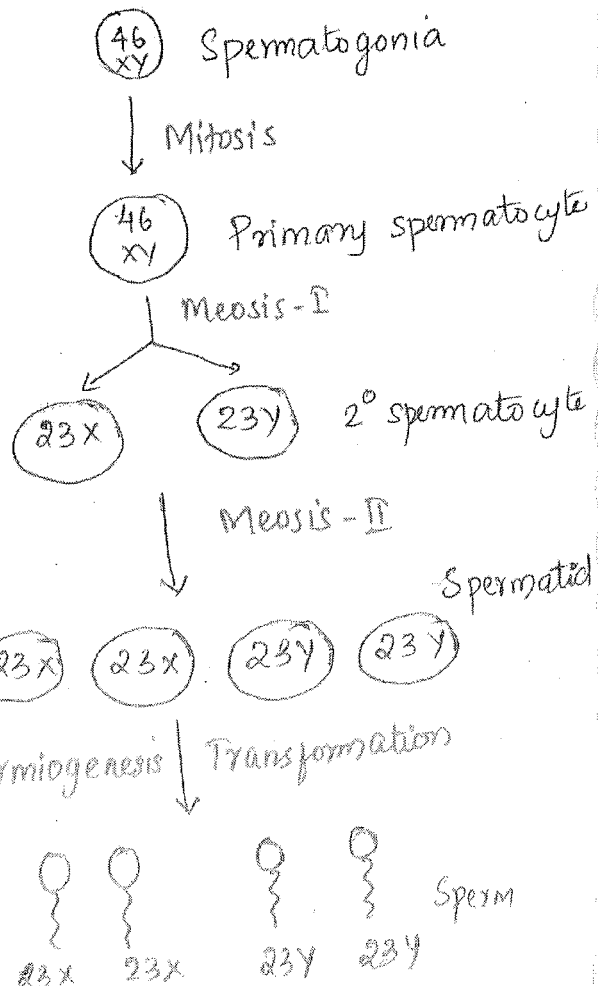 46
XY
Spermatogonia
Mitosis
46
XY
Primary spermatocyte
Meosis-I
23X
23Y
2° spermatocyte
Meosis-II
Spermatid
23X
23X
23Y
23Y
rmiogenesis
Transformation
Sperm
23X
23X
23Y
23Y